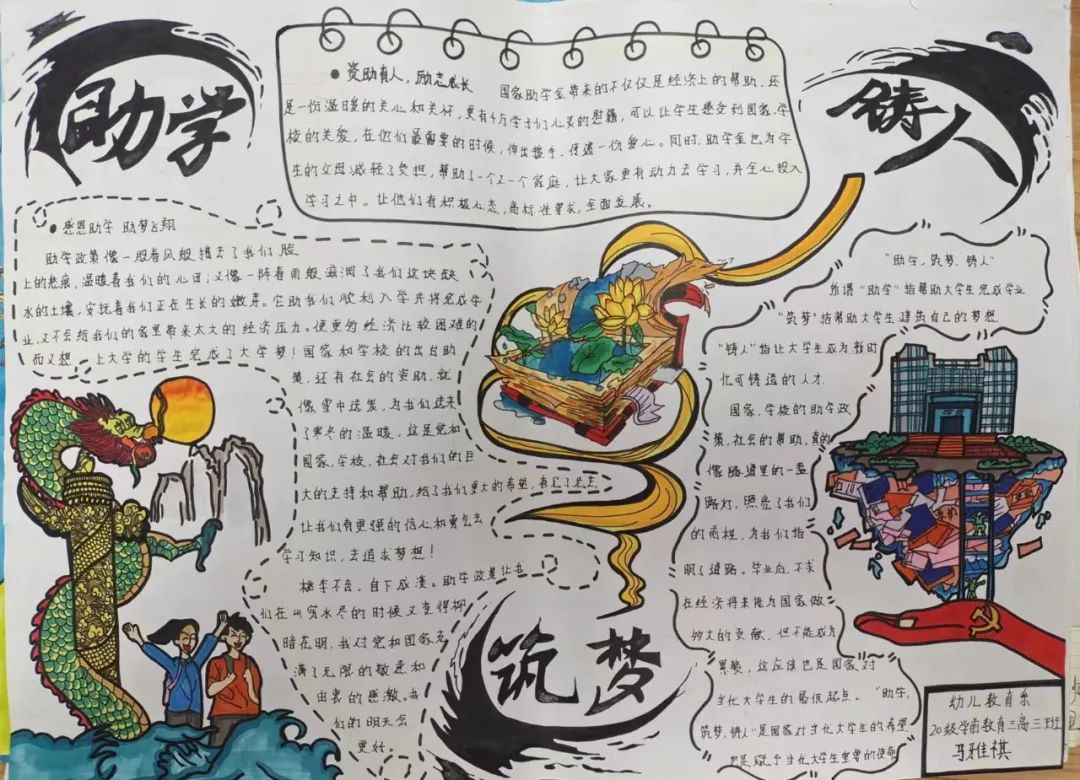 助学
铸人
●资助育人，励志成长 国家助学金带来的不仅仅是经济上的帮助，还
是一份温暖的关心和关怀，更有千万学子们心灵的慰籍，可以让学生感受到国家，学
校的关爱，在他们最需要的时候，伸出援手，传递一份爱心。同时，助学金也为学
生的父母减轻了负担，帮助了一个又一个家庭，让大家更有动力去学习，并全心投入
学习之中。让他们有积极心态，高标准要求，全面发展。
●感恩助学 助梦飞翔
助学政策像一股春风般拂去了我们脸
上的愁痕，温暖着我们的心田；又像一阵春雨般滋润了我们这块缺
水的土壤，安抚着我们正在生长的嫩芽。它助我们顺利入学并将完成学
业，又不会给我们的家里带来太大的经济压力。使更多经济比较困难的
而又想 上大学的学生完成了大学梦！国家和学校的出台助
策，还有社会的资助，就
像雪中送炭，为我们送来
了寒冬的温暖，这是党和
国家，学校，社会对我们的巨
大的支持和帮助，给了我们更大的希望，
让我们有更强的信心和勇气去
学习知识，去追求梦想！
桃李不言，自下成溪。助学政策让我
们在山穷水尽的时候又变得柳
暗花明，我对党和国家充
满了无限的敬意和
由衷的感激，
们的明天会
更好。
“助学，筑梦，铸人”
所谓“助学”指帮助大学生完成学业
“筑梦”指帮助大学生建筑自己的梦想
“铸人”指让大学生成为新时
代可铸造的人才.
国家，学校的助学政
策，社会的帮助，真的
像隧道里的一盏
路灯，照亮了我们
的前程，为我们指
明了道路。毕业后，不求
在经济将来能为国家做
多大的贡献，但不能成为
累赘，这应该也是国家对
当代大学生的最低起点。“助学，
筑梦，铸人”是国家对当代大学生的希望
也是赋予当代大学生重要的使命
筑梦
幼儿教育系
20级学前教育三高三班
马雅祺